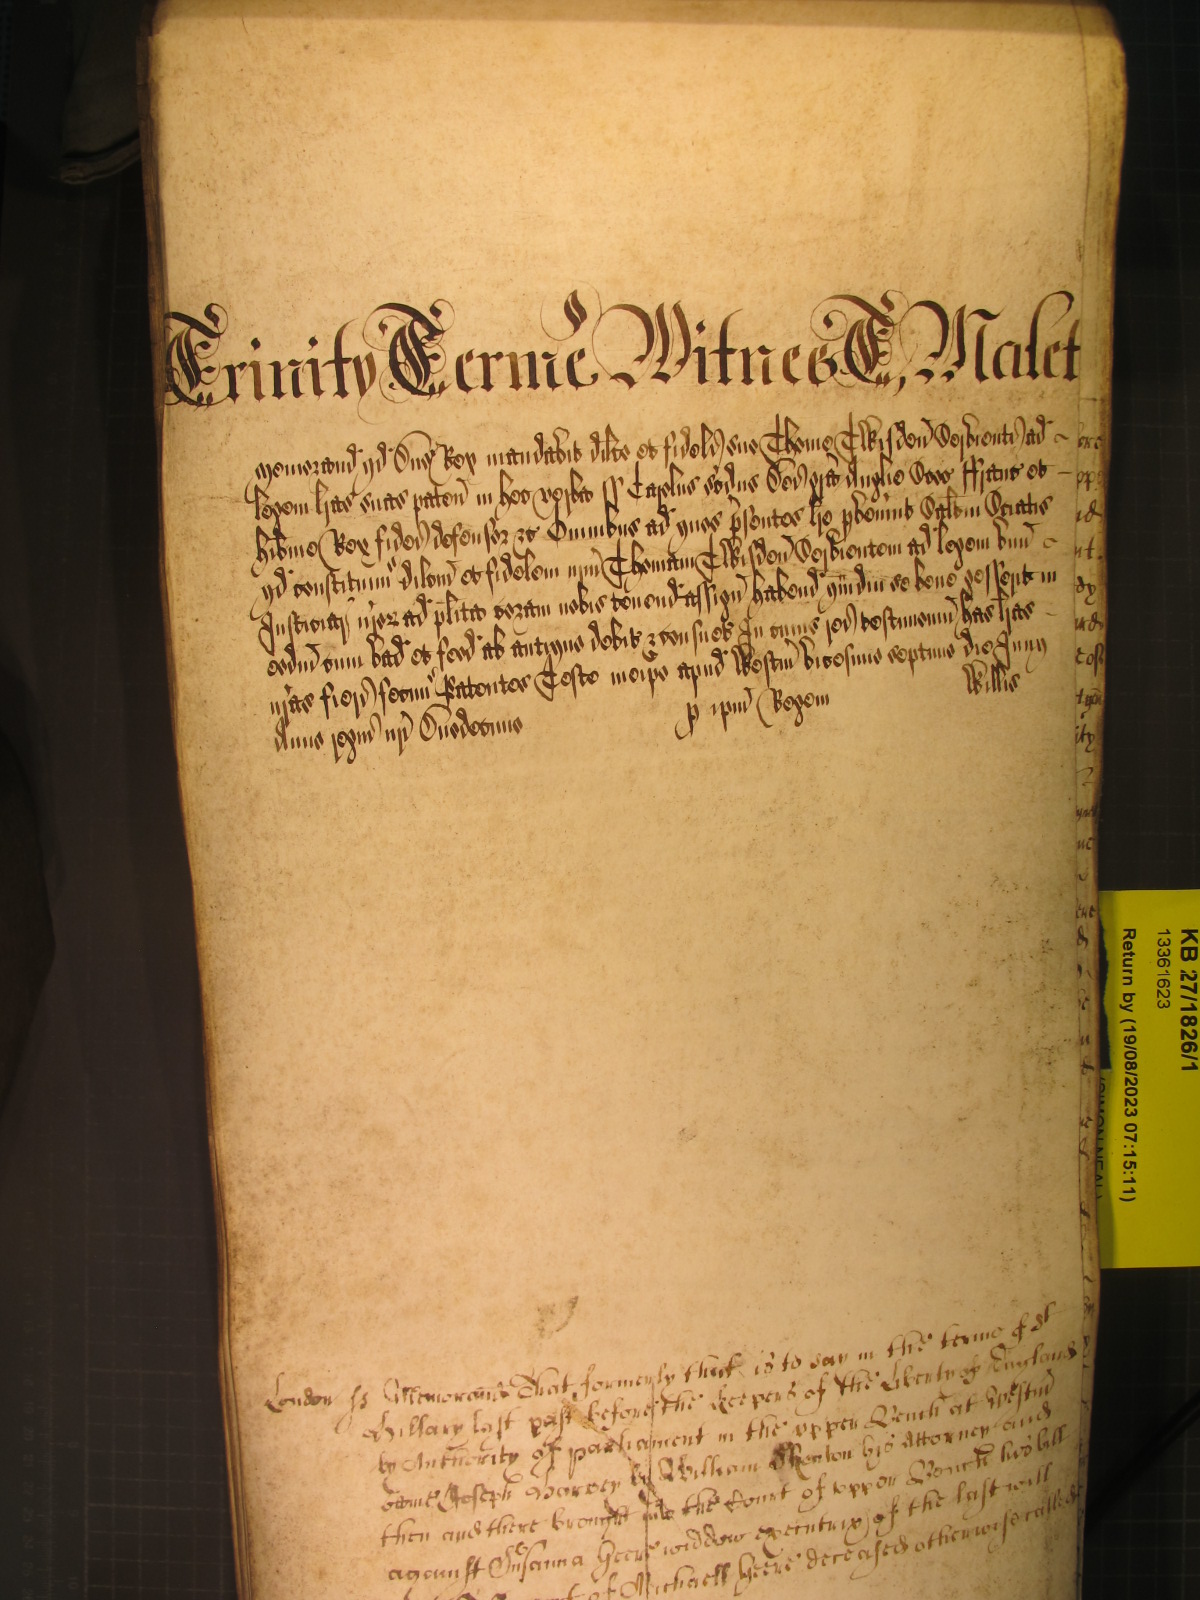 Trinity Terme Witnes T, Malet
Memorand qd Dns Rex mandabit dilco et fideli suo Thome Twisden Servienti ad
legem lras suas paten in hec verba ss Carolus scdus Dei gra Anglie Scoc Franc et
Hibnie Rex fidei defensor &c Omnibus ad quos psentes lre pvenint Saltm Sciatis
qd constituim dilcm et fidelem nrm Thomam Twisden Servientem ad legem unu
Justiciar nror ad plita coram nobis tenend assign habend qmdiu se bene gesserit in
eodm cum vad et feod ab antiquo debit & consuet In cuius rei testimoniu has lras
nras fieri fecim Patentes Teste meipo apud Westm vicesimo septimo die Junij
Anno regni nri Duodecimo p ipm Regem Willis
London ss Memorand That formerly that is to say in the terme of St
Hillary last past before the keepers of the Liberty of England
by Authority of parliament in the upper Bench at Westm
came Joseph Harvey by William Heaton his Attorney and
then and there brought into the Court of upper Bench his bill
against Susanna Heere widdow executrix of the last will
of Michaell Heere deceased otherwise called
KB 27/1826/1
13361623
Return by (19/08/2023 07:15:11)
(SIMON NEAL)